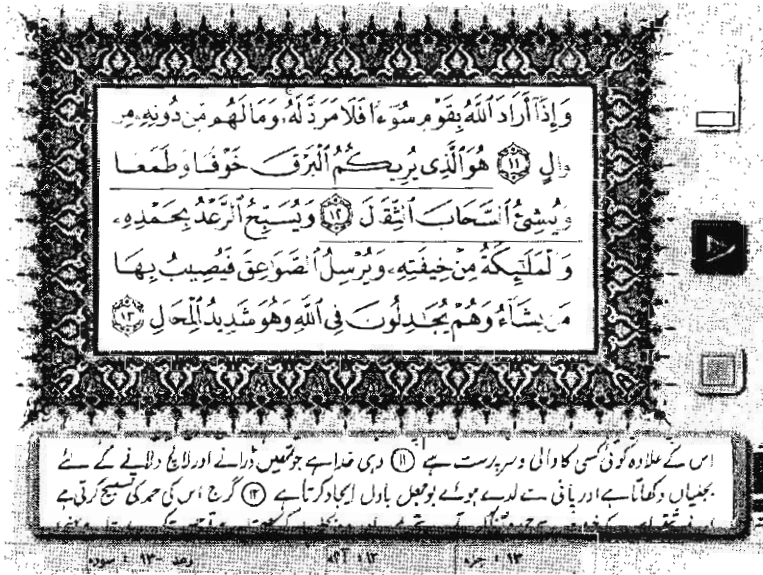 وَإِذَآ أَرَادَ ٱللَّهُ بِقَوْمٍ سُوٓءًا فَلَا مَرَدَّ لَهُۥ وَمَا لَهُم مِّن دُونِهِۦ مِن
وَالٍ ١١ هُوَ ٱلَّذِى يُرِيكُمُ ٱلْبَرْقَ خَوْفًا وَطَمَعًا
وَيُنشِئُ ٱلسَّحَابَ ٱلثِّقَالَ ١٢ وَيُسَبِّحُ ٱلرَّعْدُ بِحَمْدِهِۦ
وَٱلْمَلَٰٓئِكَةُ مِنْ خِيفَتِهِۦ وَيُرْسِلُ ٱلصَّوَٰعِقَ فَيُصِيبُ بِهَا
مَن يَشَآءُ وَهُمْ يُجَٰدِلُونَ فِى ٱللَّهِ وَهُوَ شَدِيدُ ٱلْمِحَالِ ١٣
اس کے علاوہ کوئی کسی کا والی و سرپرست ہے ۱۱ وہی خدا ہے جو تمھیں ڈرانے اور لالچ دلانے کے لئے
بجلیاں دکھاتا ہے اور پانی سے لدے ہوئے بوجھل بادل ایجاد کرتا ہے ۱۲ گرج اس کی حمد کی تسبیح کرتی ہے
۱۳ : جزء ۱۲ : آیه رعد -۱۳ : سوره